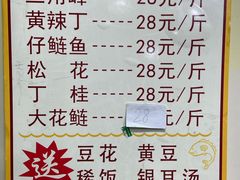 28元/斤
黄辣丁 28元/斤
仔鲢鱼 28元/斤
松花 28元/斤
丁桂 28元/斤
大花鲢 28 元/斤
送 豆花 黄豆
稀饭 银耳汤